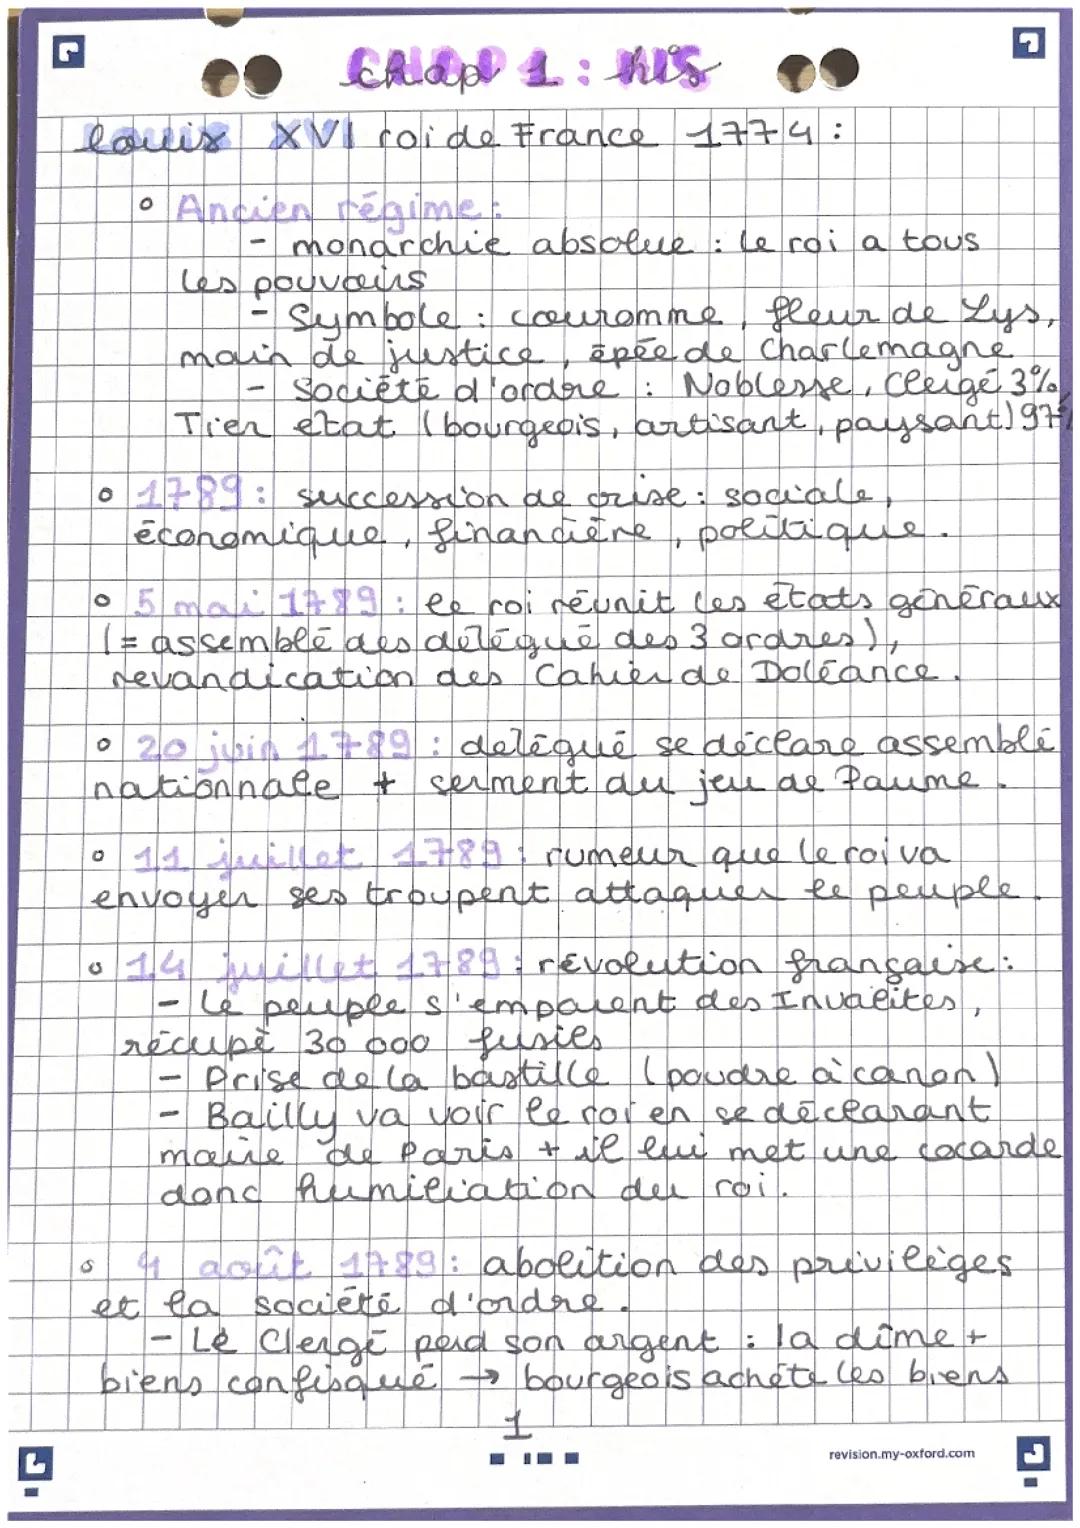 chap 1 : his
louis XVI roi de France 1774 :
Ancien régime :
- monarchie absolue : le roi a tous
les pouvoirs
- Symbole : couromme, fleur de Lys,
main de justice, épée de Charlemagne
- Société d'ordre : Noblesse, Clergé 3%,
Tier état (bourgeois, artisant, paysant) 97%
1789 : succession de crise : sociale,
économique, financière, politique.
5 mai 1789 : le roi réunit les états généraux
(= assemblé des délégué des 3 ordres),
revandication des Cahier de Doléance.
20 juin 1789 : délégué se déclare assemblé
nationnale + serment du jeu de Paume.
11 juillet 1789 : rumeur que le roi va
envoyer ses troupent attaquer le peuple.
14 juillet 1789 : révolution française :
- Le peuple s'emparent des Invalites,
récupè 30 000 fusies
- Prise de la bastille (poudre à canon)
- Bailly va voir le roi en se déclarant
maire de Paris + il lui met une cocarde
donc humiliation du roi.
4 août 1789 : abolition des privilèges
et la société d'ordre.
- Le Clergé perd son argent : la dîme +
biens confisqué → bourgeois achète les biens
1
revision.my-oxford.com